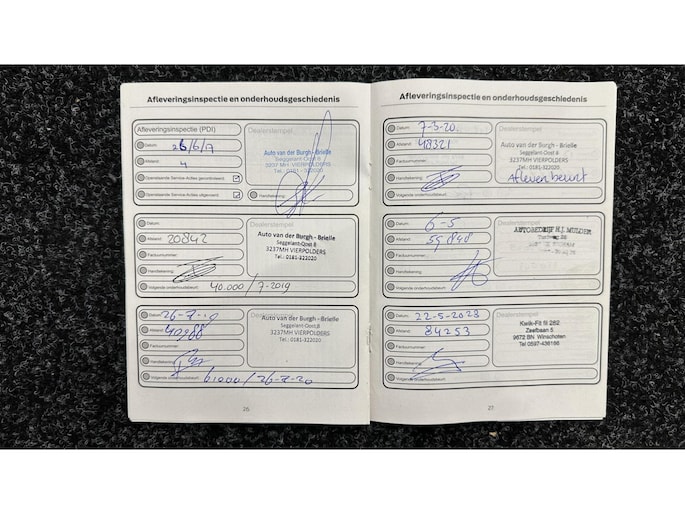 Afleveringsinspectie en onderhoudsgeschiedenis
Afleveringsinspectie (PDI)
Dealerstempel
Datum: 26/6/17
Auto van der Burgh - Brielle
Seggelant-Oost 8
3237 MH VIERPOLDERS
Tel.: 0181-322020
Afstand: 4
Openstaande Service-Acties gecontroleerd:
Openstaande Service-Acties uitgevoerd:
Handtekening:
Datum:
Dealerstempel
Auto van der Burgh - Brielle
Seggelant-Oost 8
3237MH VIERPOLDERS
Tel.: 0181-322020
Afstand: 20842
Factuurnummer:
Handtekening:
Volgende onderhoudsbeurt: 40.000 / 7-2019
Datum: 26-7-19
Dealerstempel
Auto van der Burgh - Brielle
Seggelant-Oost 8
3237MH VIERPOLDERS
Tel.: 0181-322020
Afstand: 40988
Factuurnummer:
Handtekening:
Volgende onderhoudsbeurt: 61000 / 26-7-20
26
Afleveringsinspectie en onderhoudsgeschiedenis
Datum: 7-3-20
Dealerstempel
Auto van der Burgh - Brielle
Seggelant-Oost 8
3237MH VIERPOLDERS
Tel.: 0181-322020
Afleverbeurt
Afstand: 48321
Factuurnummer:
Handtekening:
Volgende onderhoudsbeurt:
Datum: 6-5
Dealerstempel
AUTOBEDRIJF H.J. MULDER
Afstand: 59848
Factuurnummer:
Handtekening:
Volgende onderhoudsbeurt:
Datum: 22-5-2023
Dealerstempel
Kwik-Fit fil 262
Zeefbaan 5
9672 BN Winschoten
Tel 0597-436186
Afstand: 84253
Factuurnummer:
Handtekening:
Volgende onderhoudsbeurt:
27